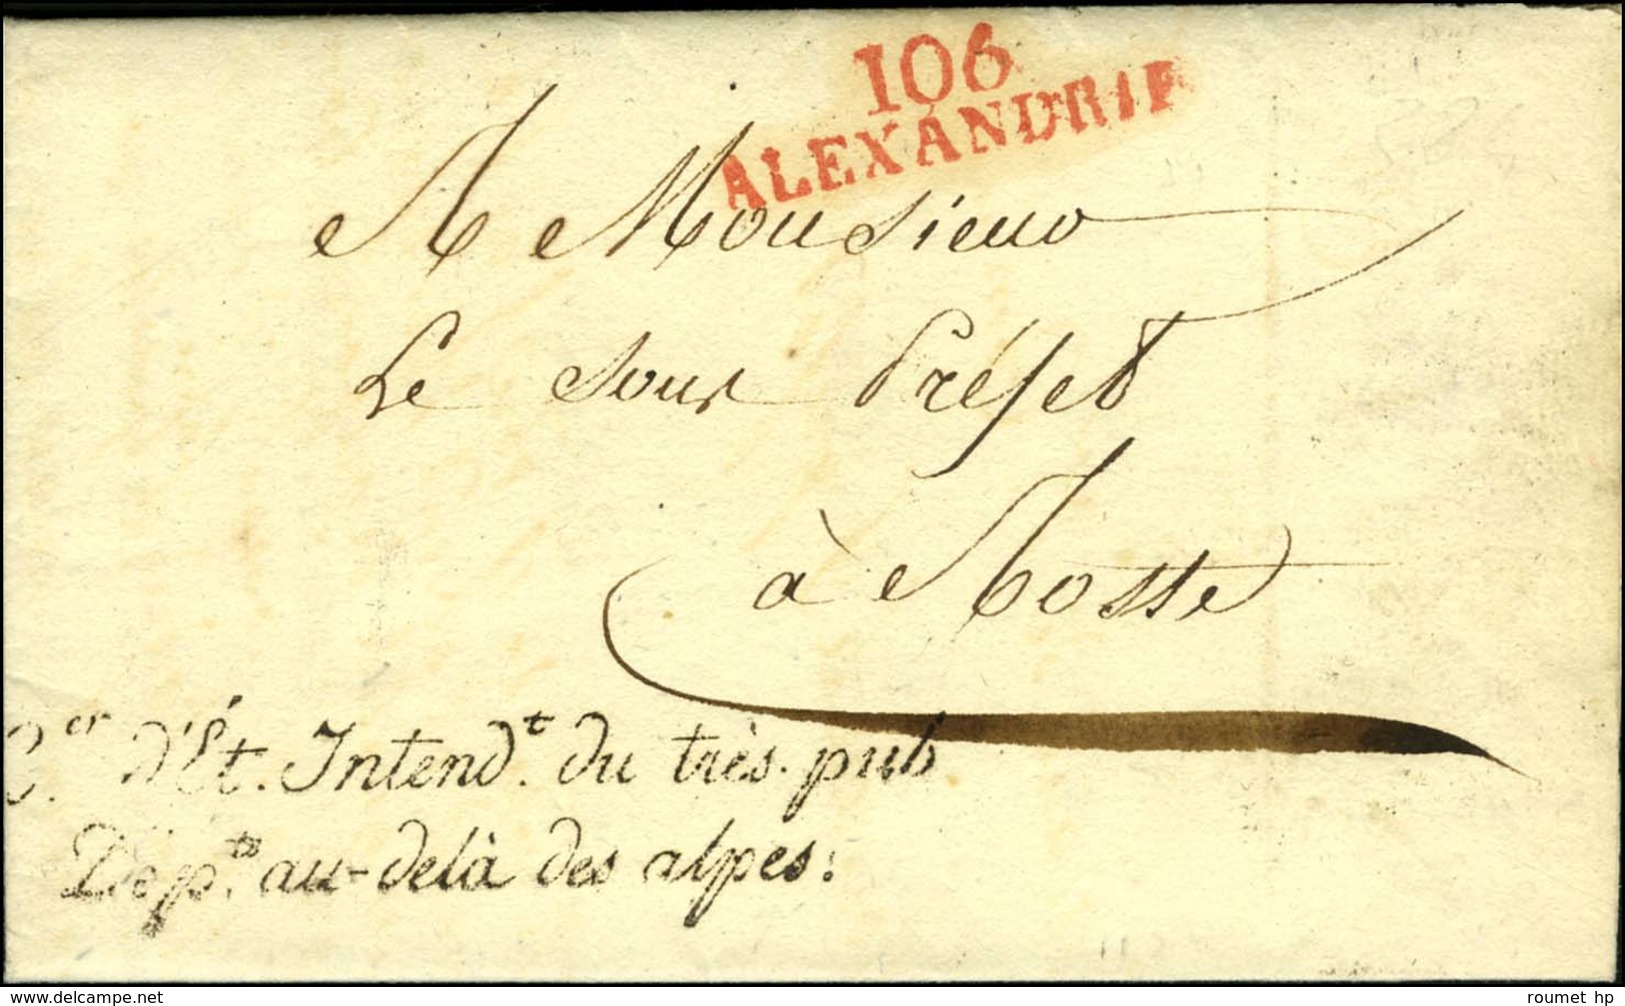 106
ALEXANDRIE
A Monsieur
Le Sous Préfet
à Aoste
C.er d'Ét. Intend.t du très. pub
Dép.ts au-delà des alpes.
delcampe.net
roumet hp